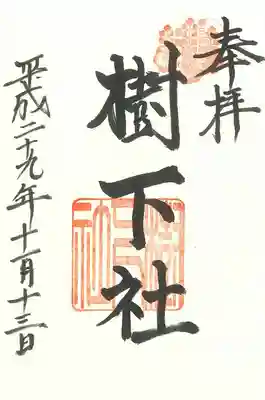 奉拝
樹下社
平成二十九年十一月十三日